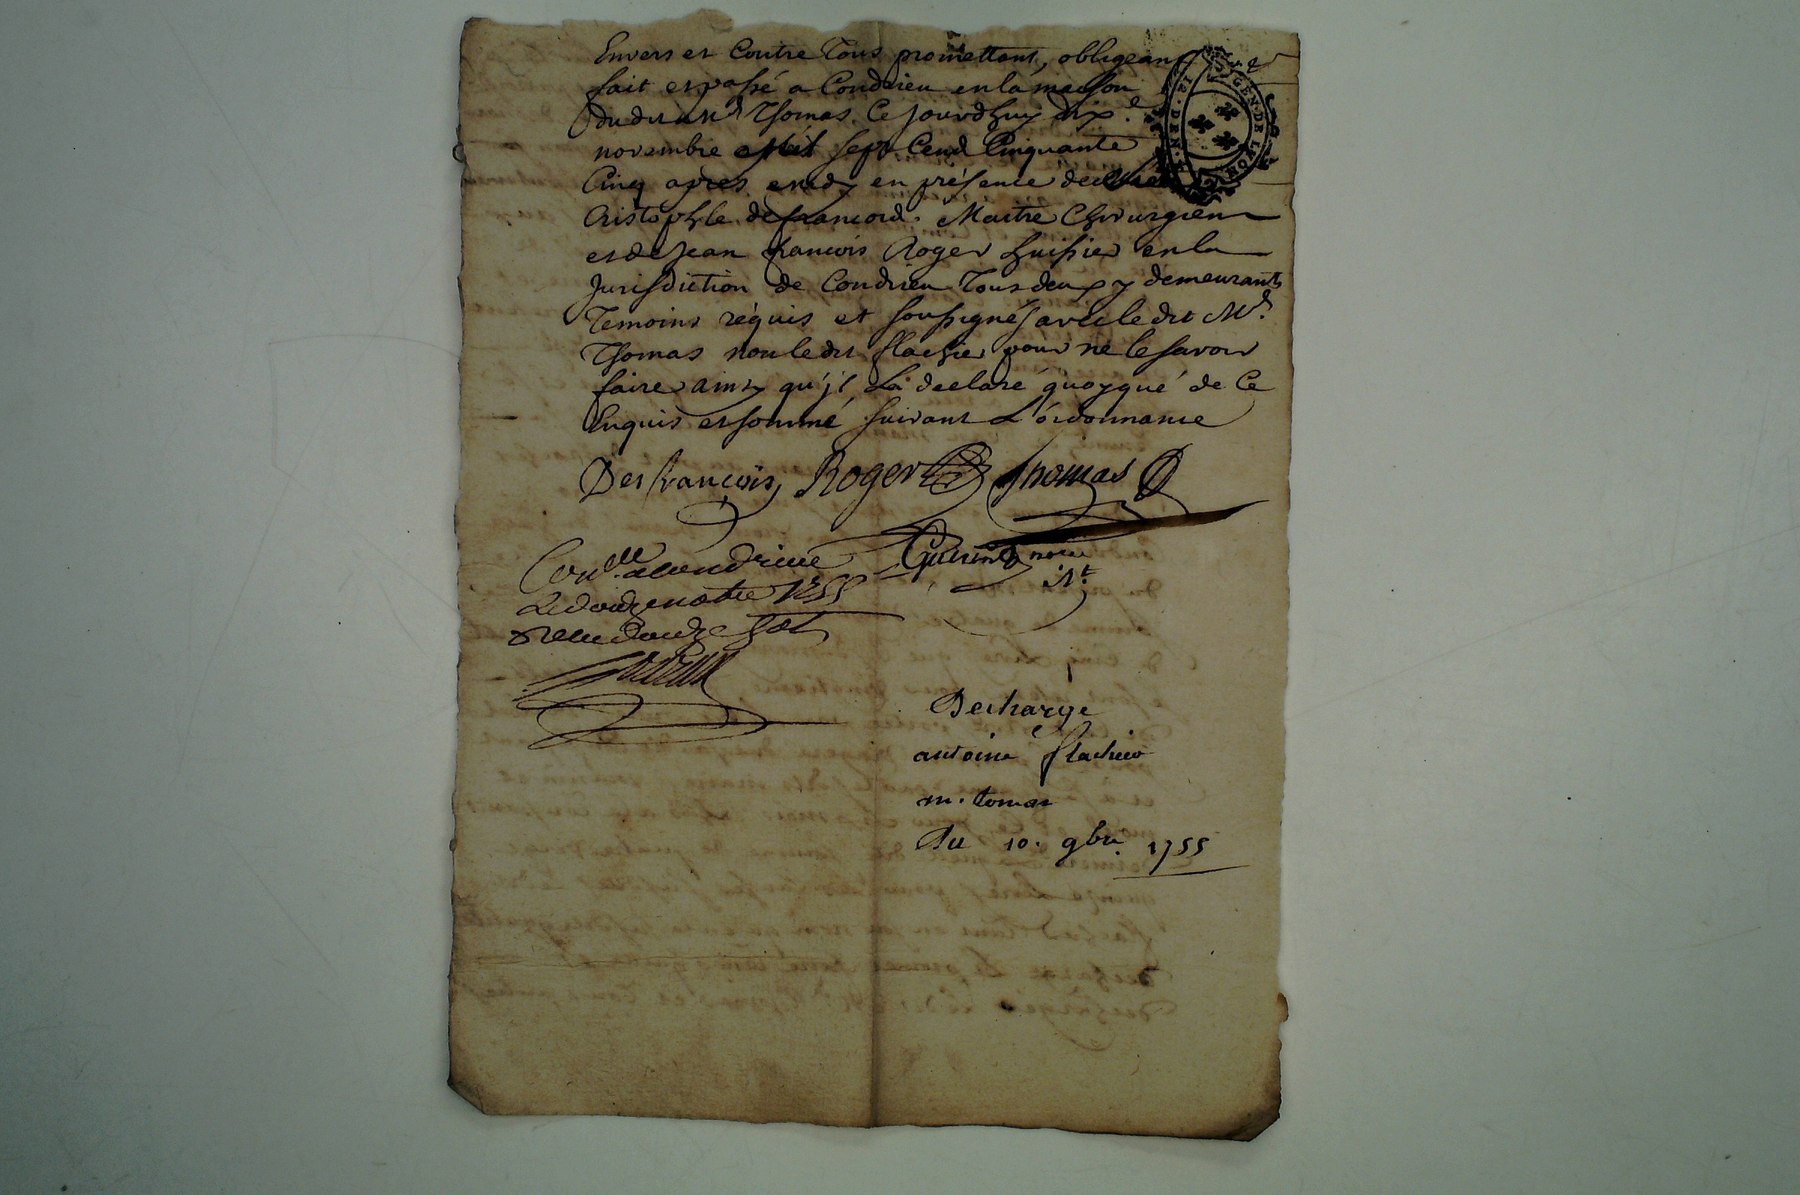 Envers et Contre Tous promettant, obligeant &
fait et passé a Condrieu en la maison
dudit Mr Thomas Ce jourdhuy dix.e
novembre mil sept Cend Cinquante
Cinq apres midy en présence de
Cristophle defrancoid. Maitre Chirurgien
et de Jean francois Roger huissier en la
Jurisdiction de Condrieu Tous deux y demeurants
Temoins réquis et soussignés avec le dit Mr.
Thomas non ledit flachier pour ne le savoir
faire ainsy qu'jl La declaré quoyqué de Ce
Enquis et sommé suivant L'ordonnance
Desfrançois, Roger Thomas
Guerin nore
Con.lle a Condrieu
Le douze nobre 1755
Reçu douze sols
GEN. DE LYON
Decharge
antoine flachier
m. tomas
Du 10. 9bre. 1755